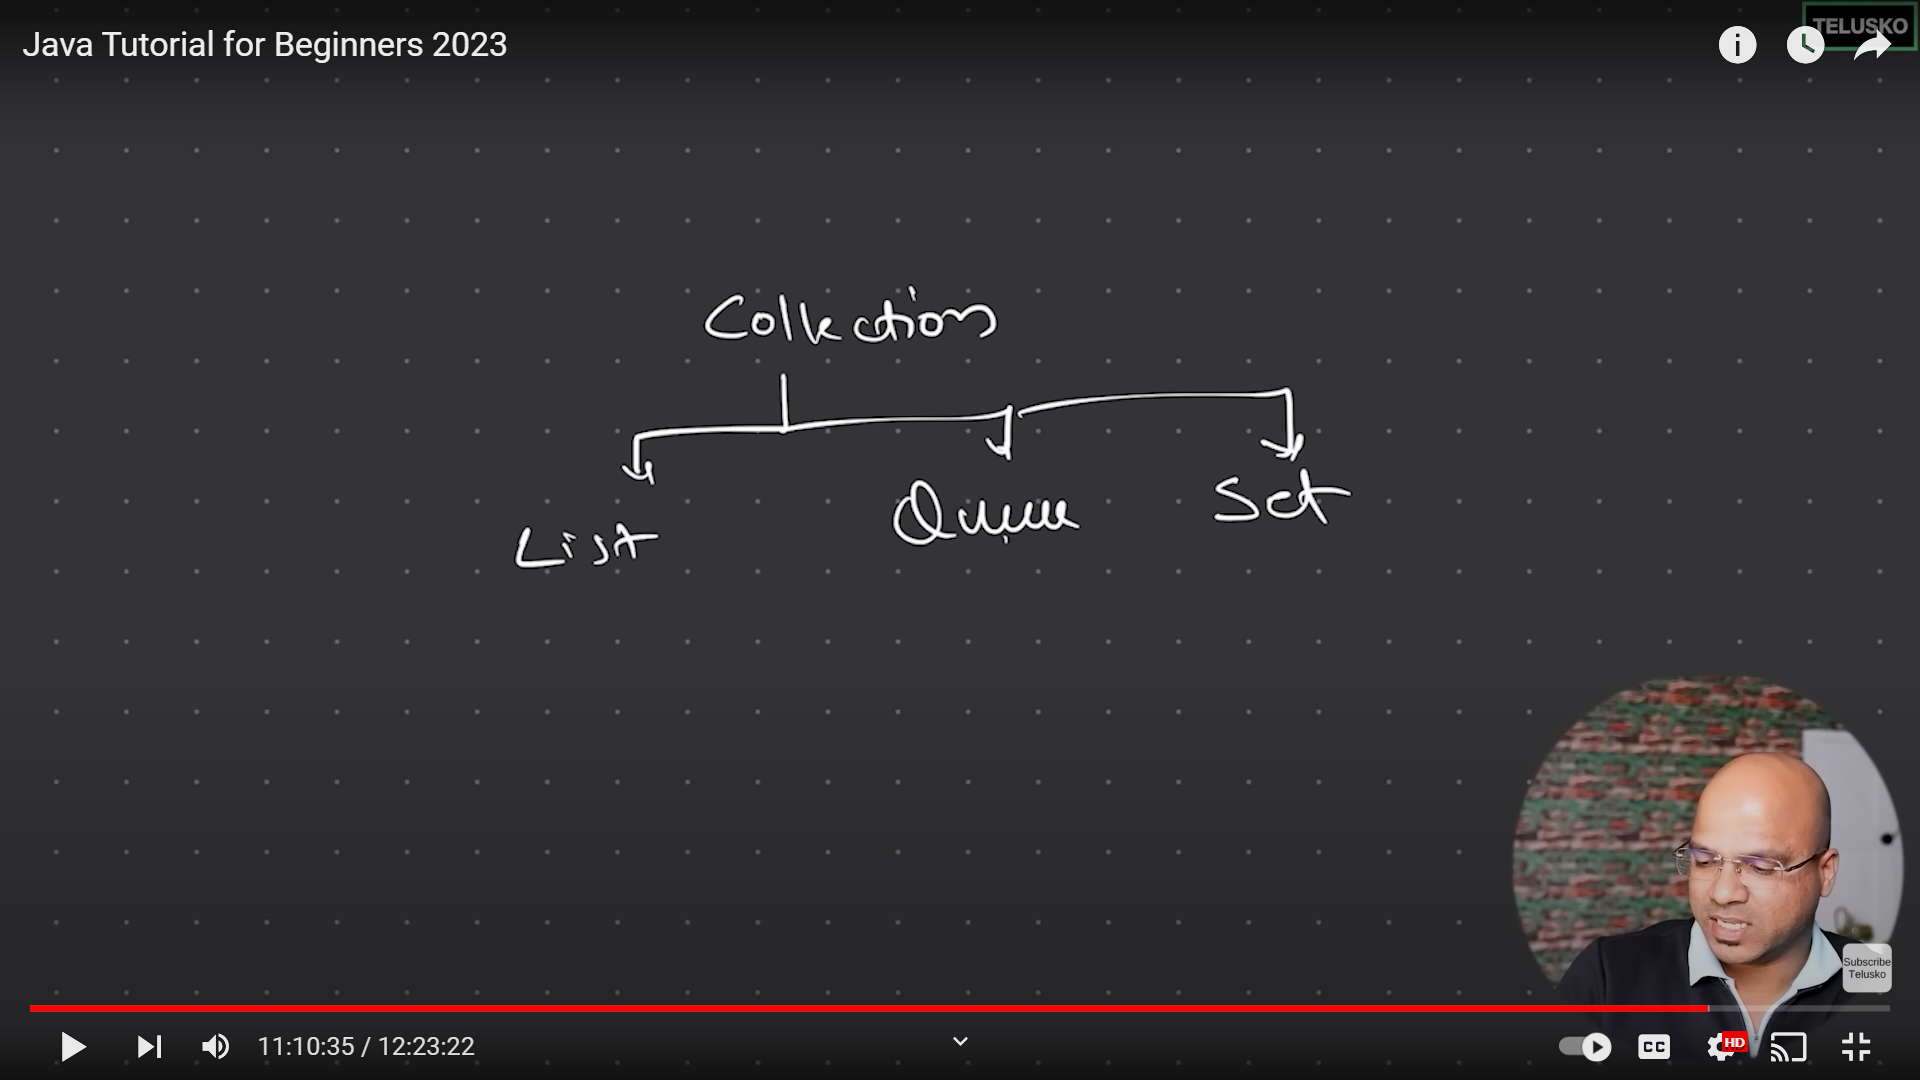 TELUSKO
Java Tutorial for Beginners 2023
Collection
List Queue Set
Subscribe
Telusko
11:10:35 / 12:23:22
CC
HD